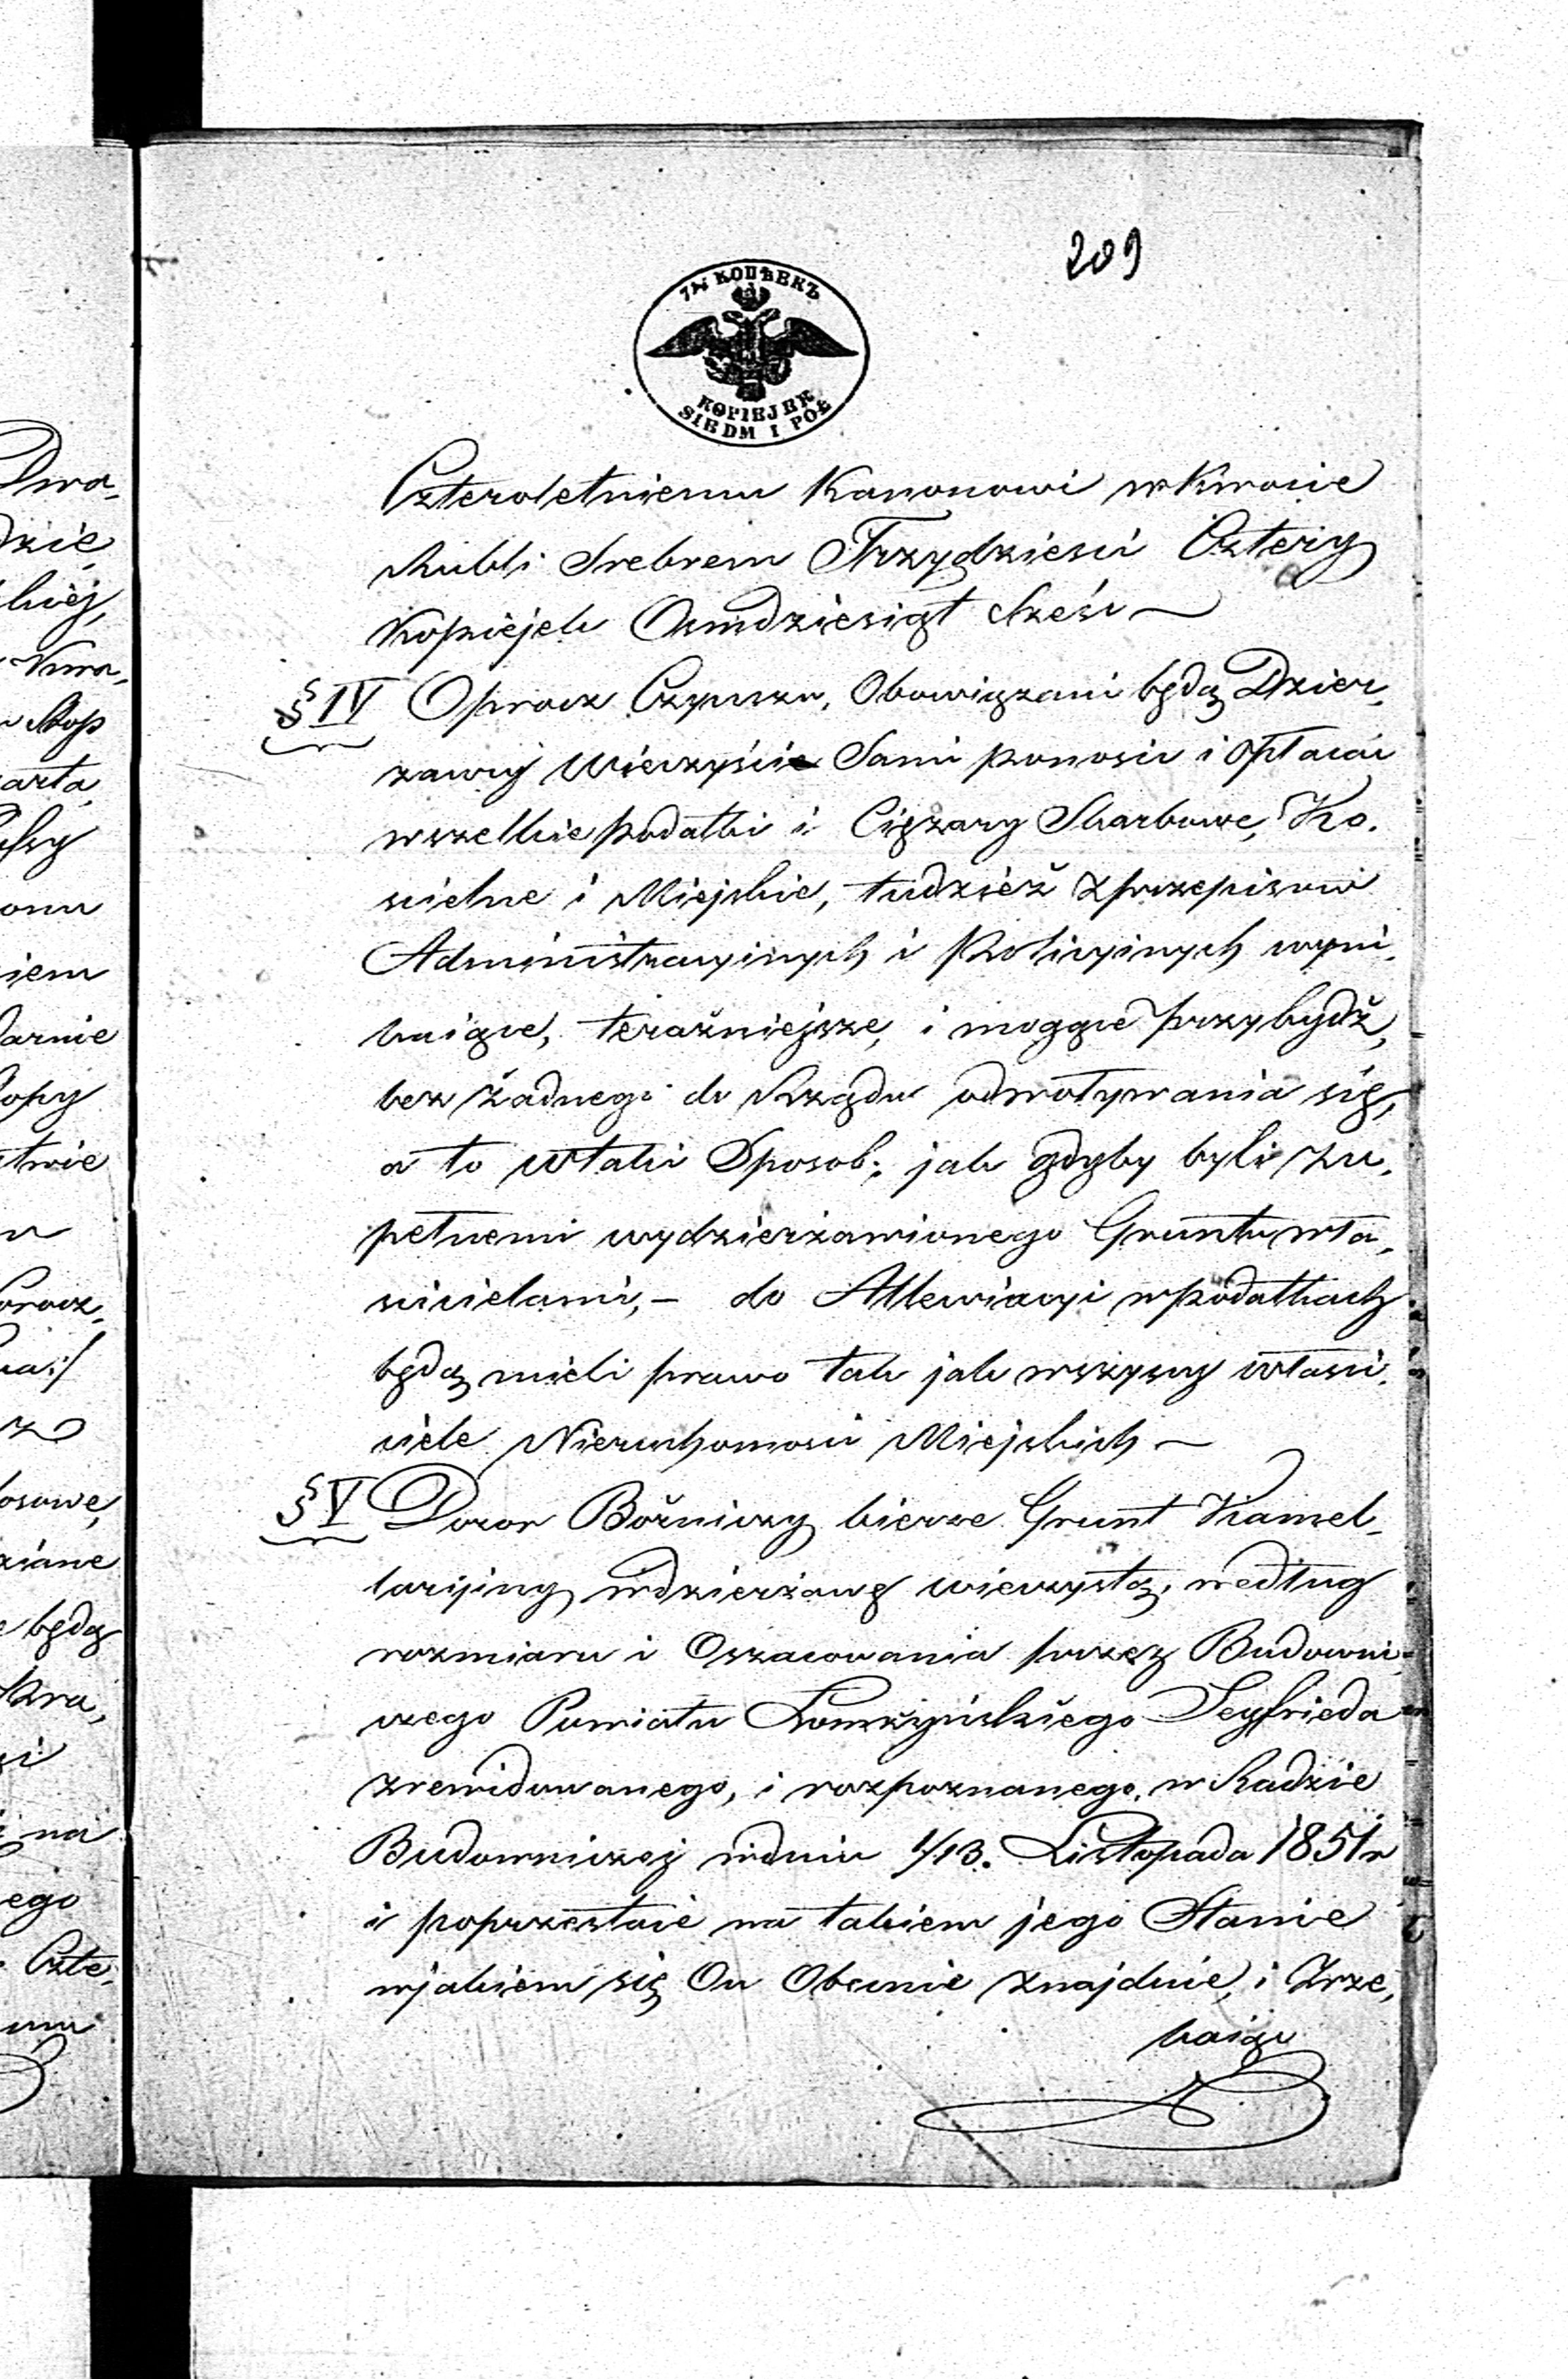 209
7½ КОПѢЕКЪ
KOPIEJEK
SIEDM I PÓŁ
Czteroletniemu Kanonowi w Kwocie
Rubli Srebrem Trzydzieści Cztery
Kopiejek Osmdziesiąt Sześć —
§ IV Oprocz Czynszu, Obowiązani będą Dzier-
zawcy Wieczyście Sami ponosić i opłacać
wszelkie podatki i Ciężary Skarbowe, Ko-
scielne i Miejskie, tudzież z przepisow
Administracyinych i Policyinych wyni-
kaiące, teraźniejsze, i mogące przybydź,
bez żadnego do Rządu odwoływania się,
a to w taki Sposob; jak gdyby byli zu-
pełnemi wydzierżawionego Gruntu wła-
scicielami, — do Allewiacyi w podatkach
będą mieli prawo tak jak wszyscy własci-
ciele Nieruchomosci Miejskich —
§ V Dozor Bożniczy bierze Grunt Kamel-
laryiny w dzierżawę wieczystą, według
rozmiaru i Oszacowania przez Budowni-
czego Powiatu Łomżyńskiego Seyfrieda
zrewidowanego, i rozpoznanego, w Radzie
Budowniczej w dniu 1/13. Listopada 1851 r
i poprzestaie na takiem jego Stanie
w jakiem się On Obecnie znajduie, i Zrze-
kaiąc
Dwa-
dzie
Kwa-
arta
onu
iem
arnie
osowe,
ziane
będą
na
ego
Czte-